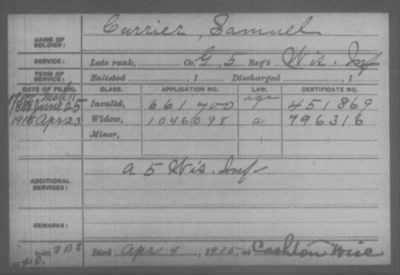 NAME OF SOLDIER: Currier, Samuel
SERVICE: Late rank, Co. G, 5 Reg't Wis. Inf
TERM OF SERVICE: Enlisted , 1 Discharged , 1
DATE OF FILING. CLASS. APPLICATION NO. LAW. CERTIFICATE NO.
1888 June 25 Invalid, 661 700 age 451 869
1915 Apr 23 Widow, 1046098 a 796316
Minor,
ADDITIONAL SERVICES: A 5 Wis. Inf
REMARKS:
Died Apr 4, 1915, at Cashton Wisc